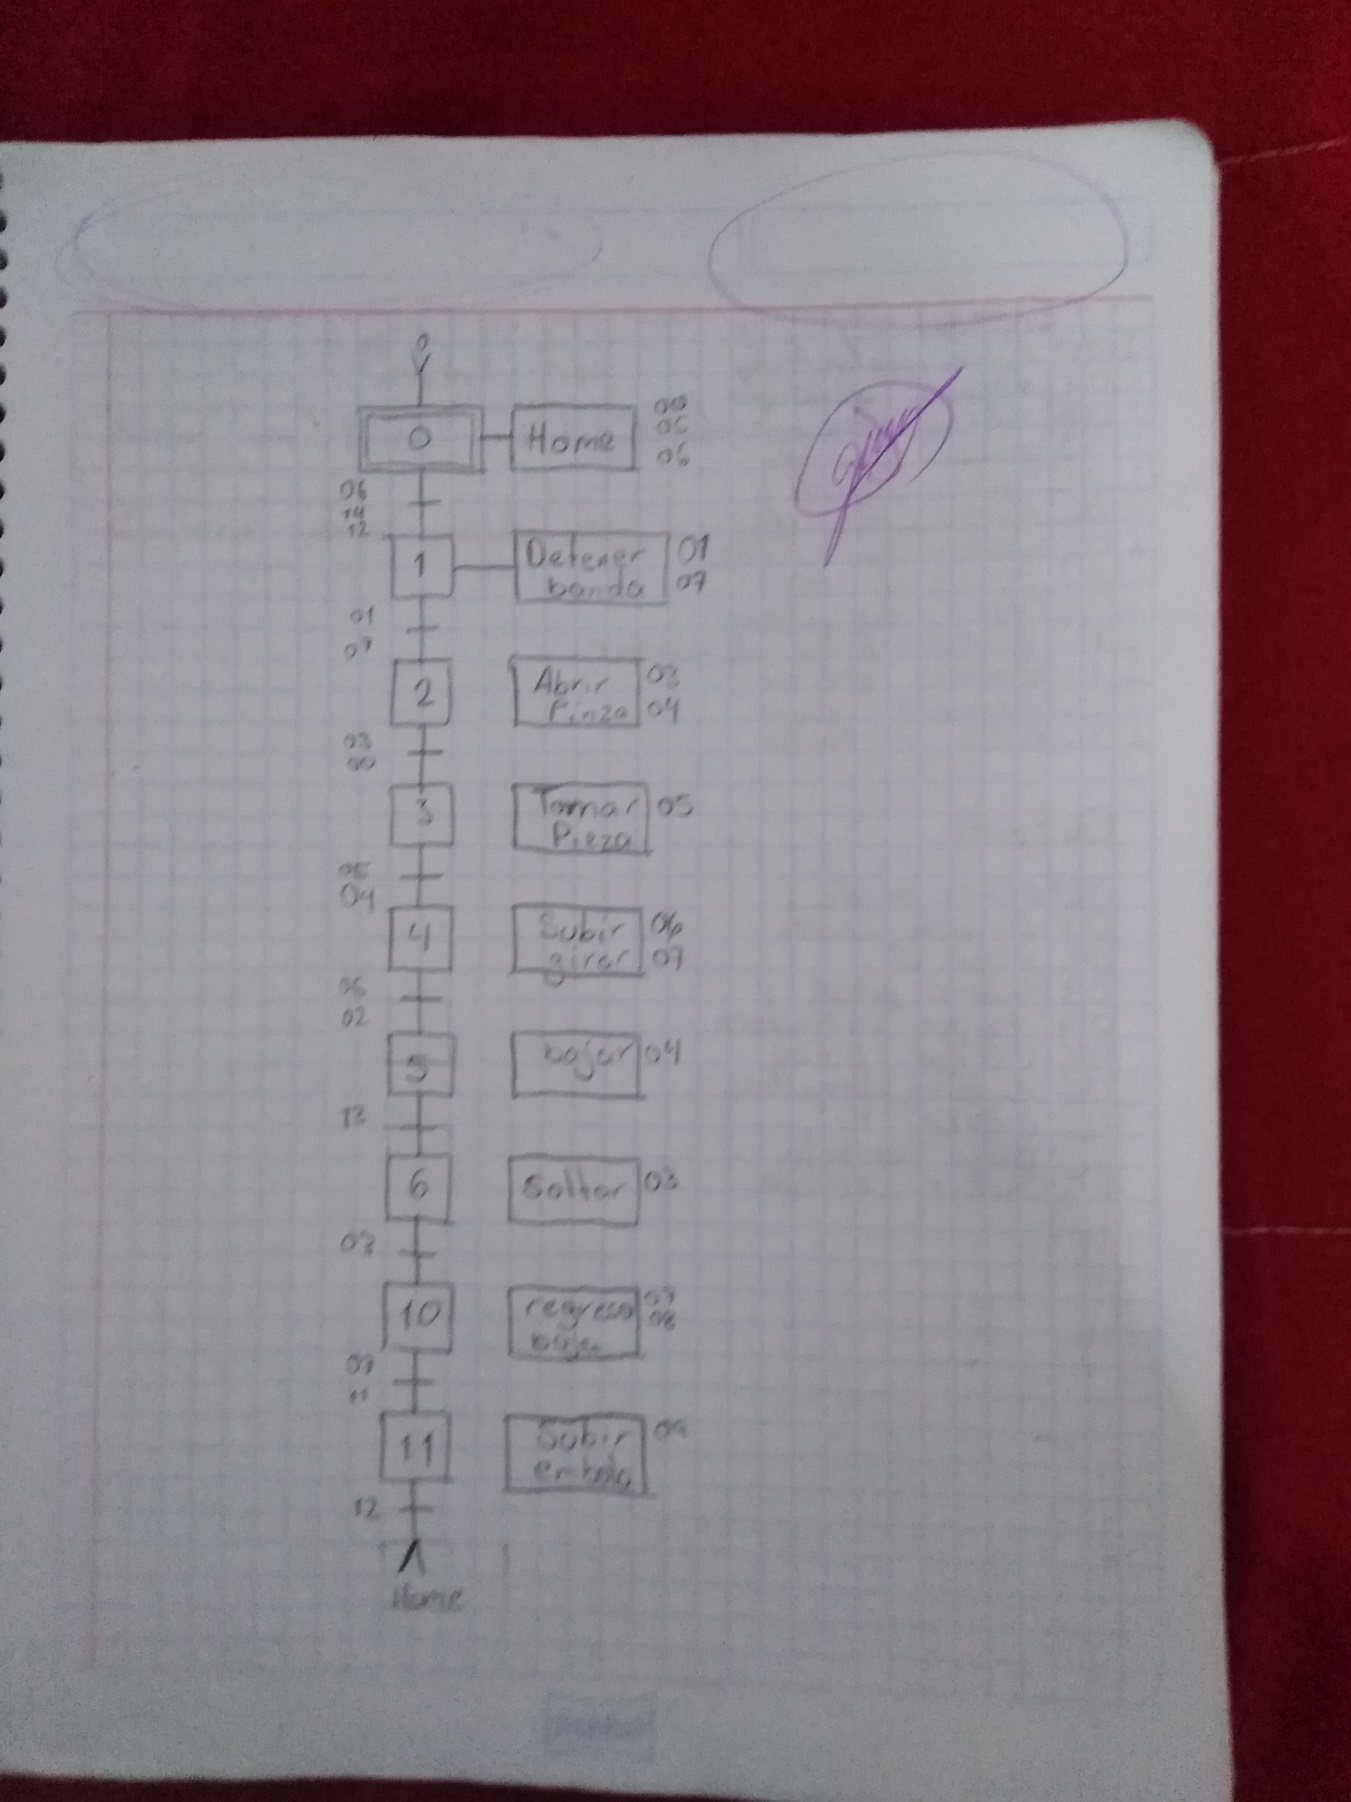 0
0
Home
00
05
06
06
14
12
1
Detener
banda
01
07
01
07
2
Abrir
Pinza
03
04
03
00
3
Tomar
Pieza
05
05
04
4
Subir
girar
06
07
06
02
5
bajar
04
13
6
Soltar
03
03
10
regresa
07
08
07
11
11
Subir
embolo
09
12
Home